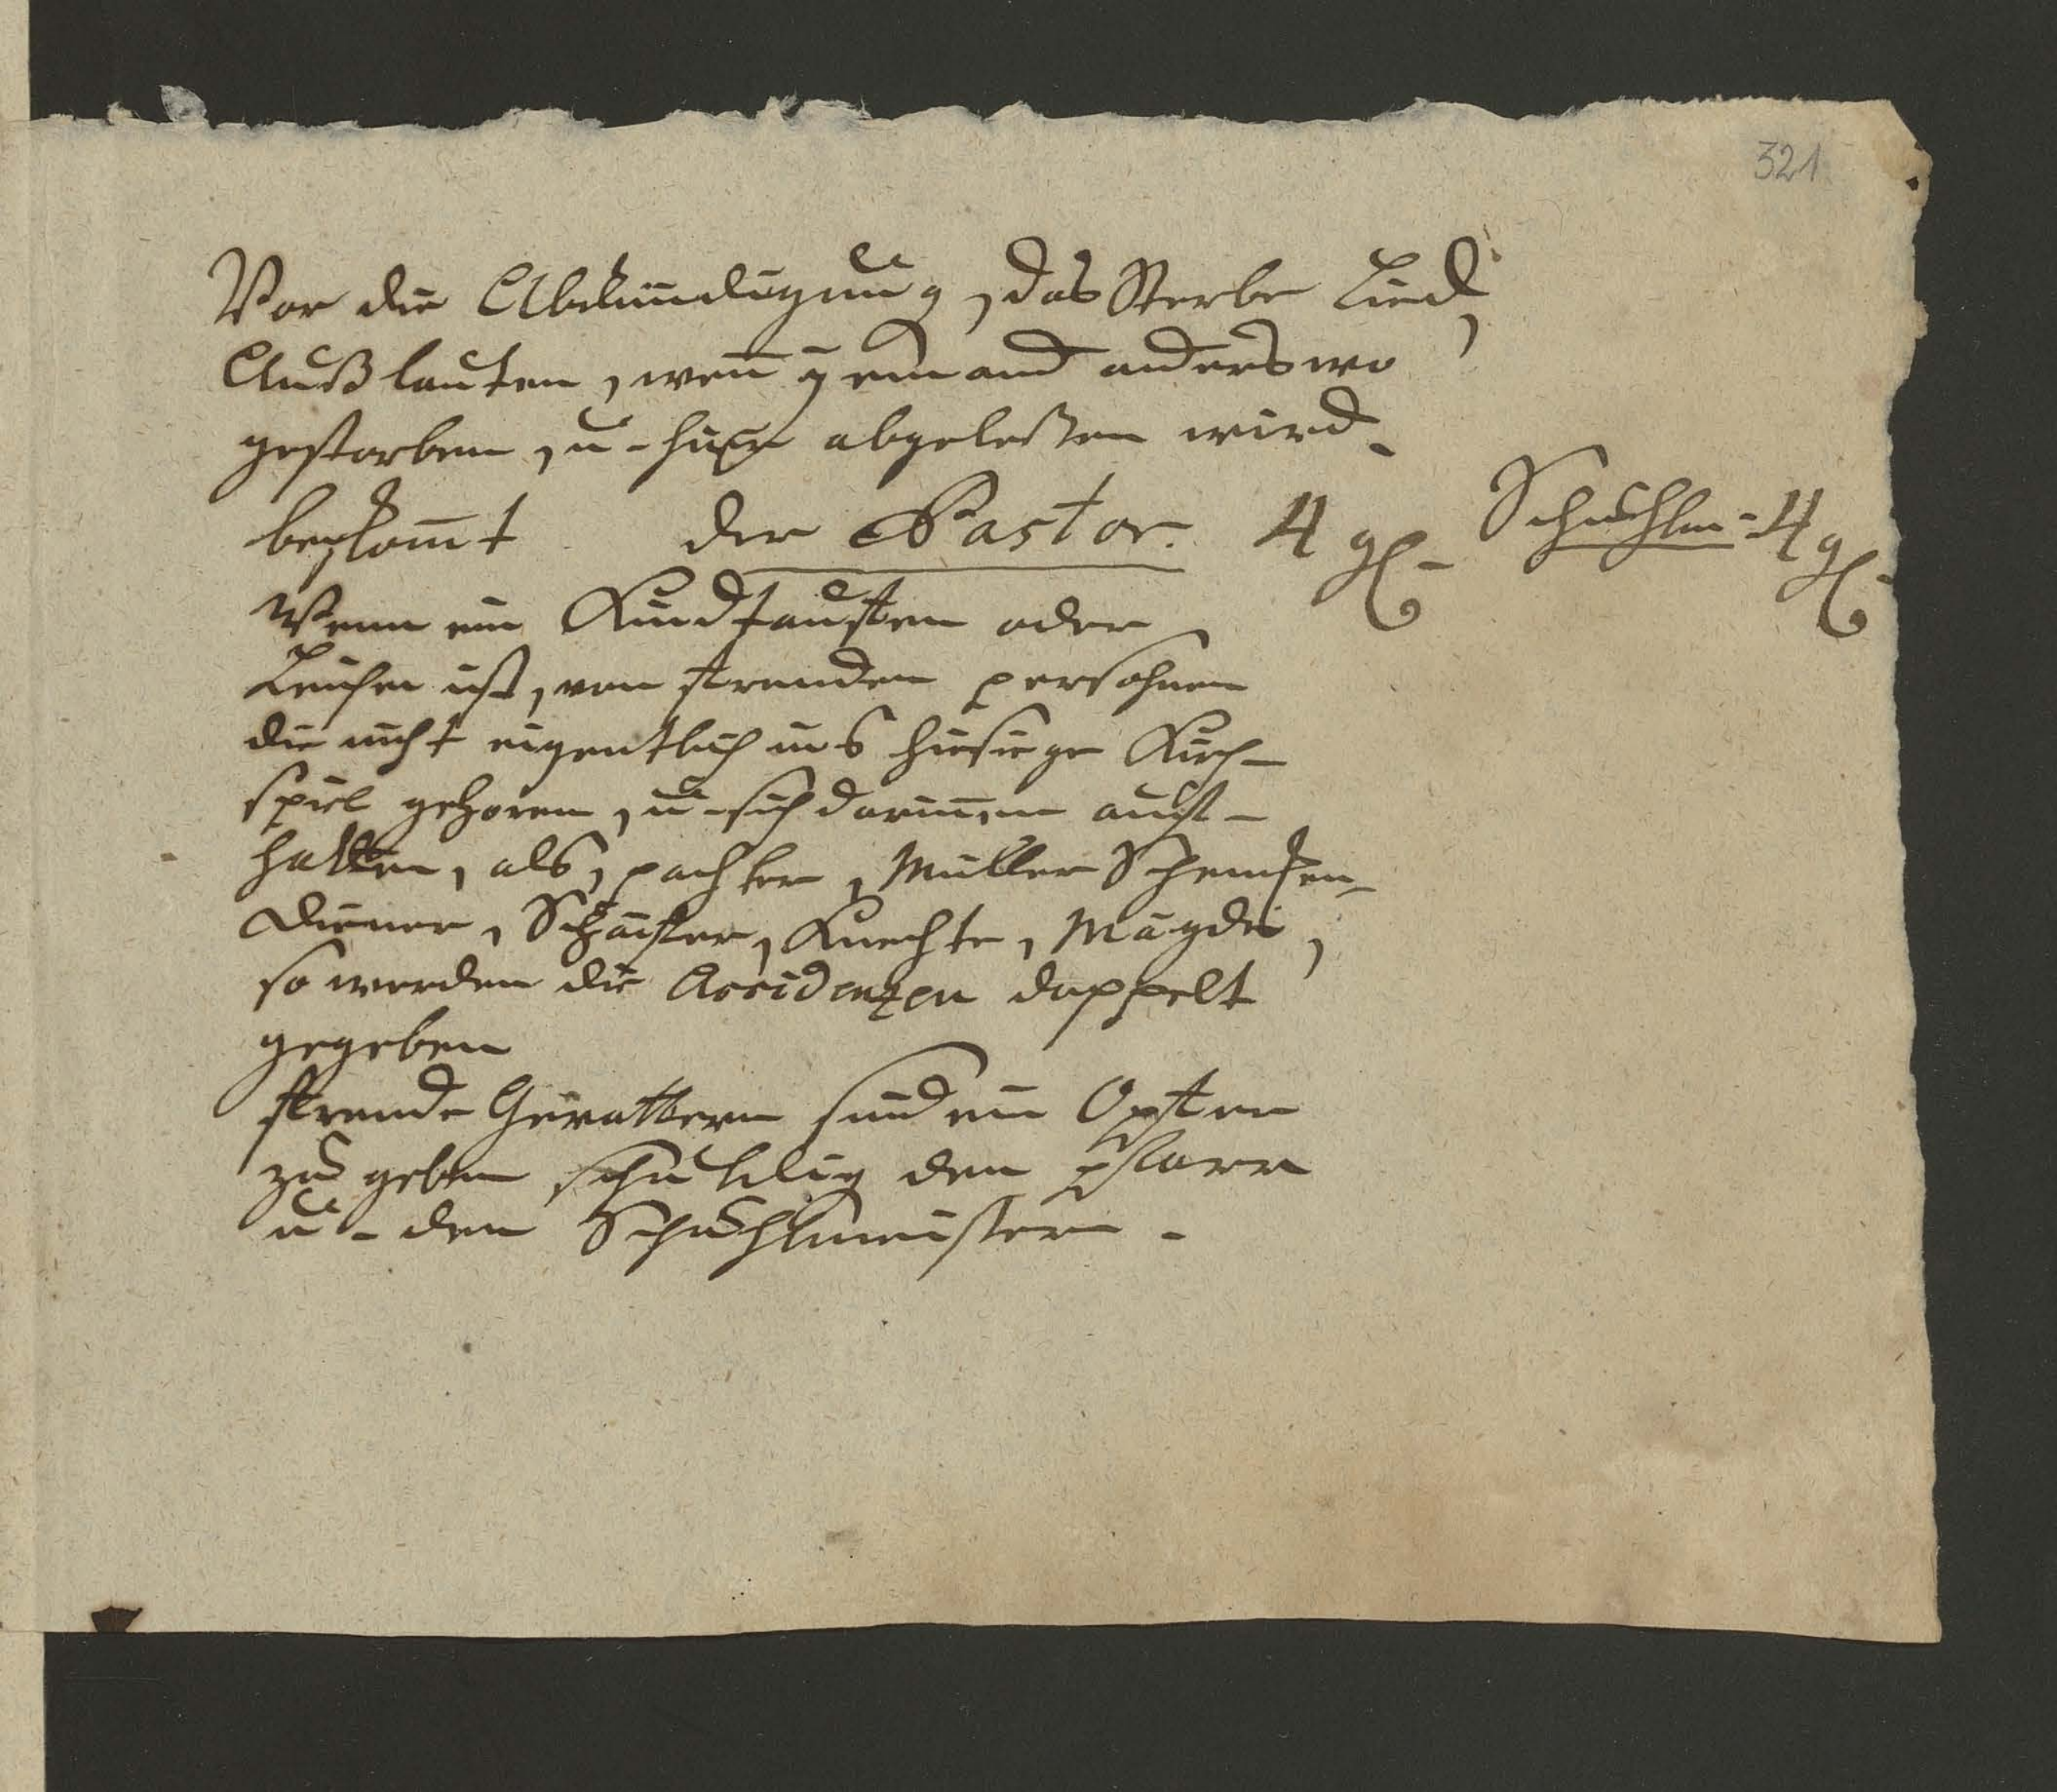 321
Vor die Abkündigung, das Sterbe Lied,
Außlauten, wen̄ yemand anderswo
gestorben, u. hier abgeleßen wird.
bekom̄t der Pastor. 4 gl. Schuhlm. 4 gl.
Wenn ein Kindtauffen oder
Leichen ist, von fremden persohnen
die nicht eigentlich ins hiesiege Kirch-
spiel gehoren, u. sich darin̄en auff-
halten, als, pachter, Müller Schencken,
Diener, Schäffer, Knechte, Mägde,
so werden die Accidenzen doppelt
gegeben
fremde Gevattern sind ein Opffer
zu geben schuldig den pfarr
u. den Schuhlmeister.